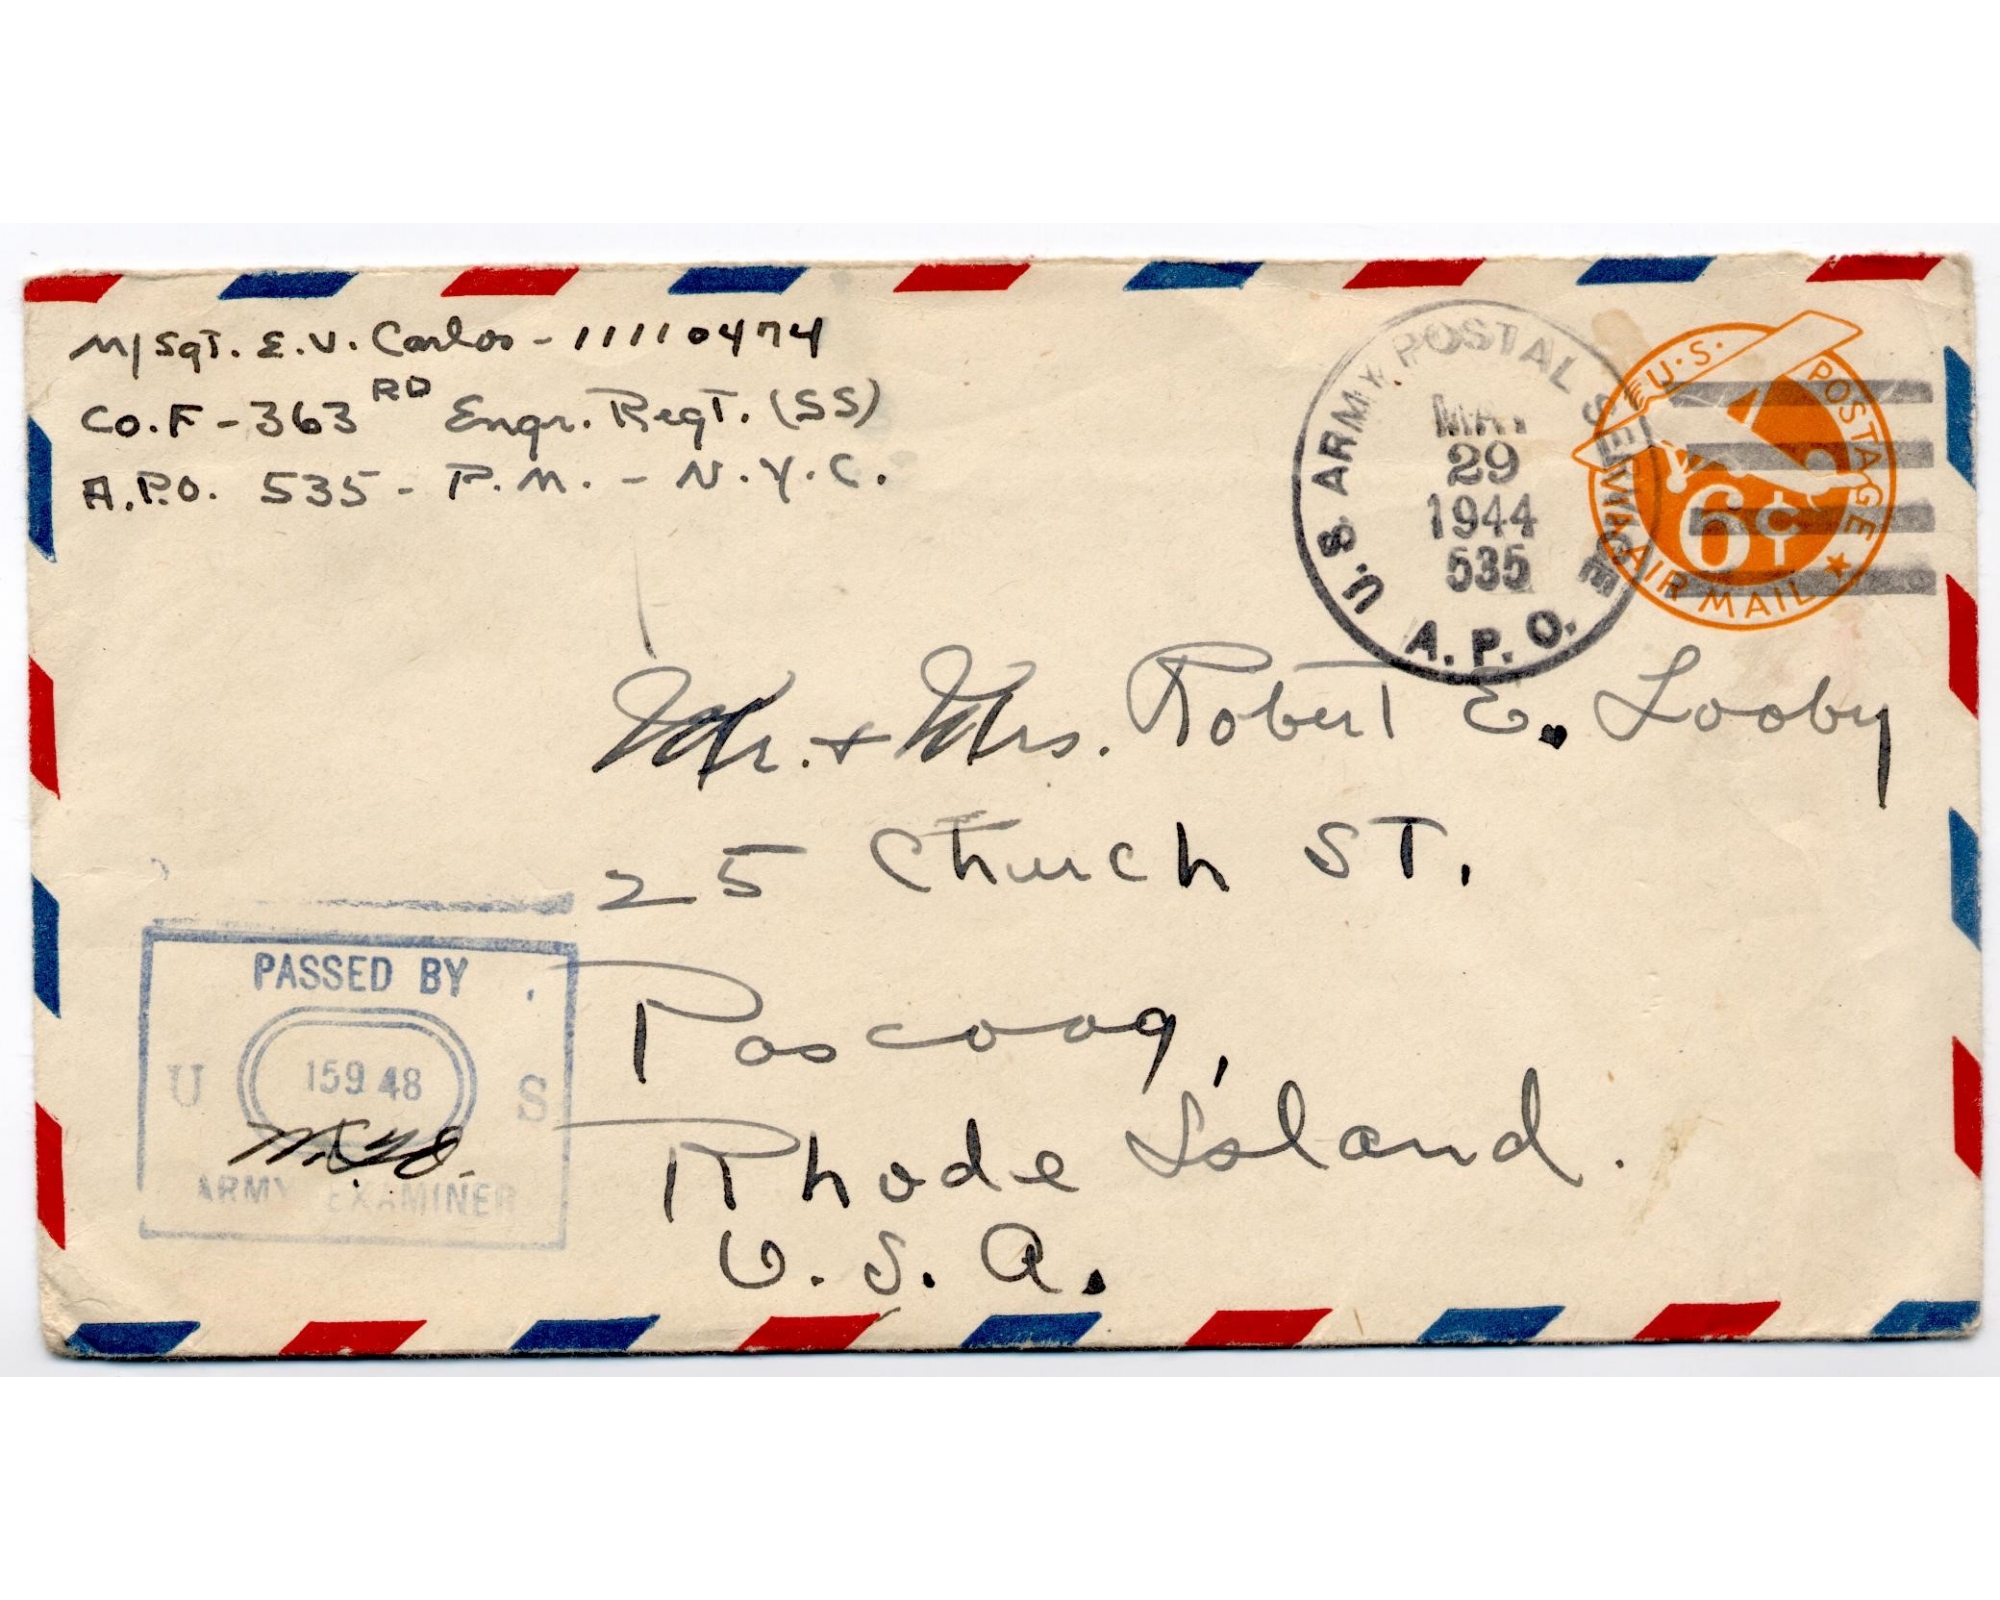 M/Sgt. E. V. Carlos - 11110474
Co. F - 363RD Engr. Regt. (SS)
A.P.O. 535 - P.M. - N.Y.C.
U.S. ARMY POSTAL SERVICE
29
1944
535
A.P.O.
U.S. POSTAGE
6¢
AIR MAIL
Mr. + Mrs. Robert E. Looby
25 Church ST.
Pascoag,
Rhode Island.
U. S. A.
PASSED BY
U 15948 S
ARMY EXAMINER